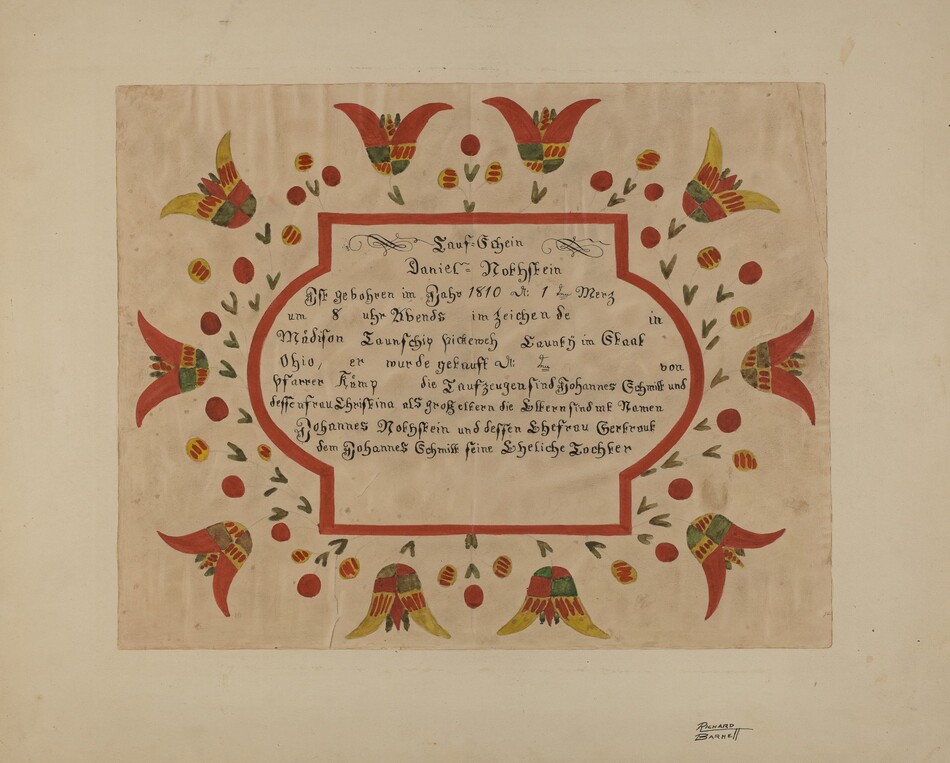 Tauf=Schein
Daniel= Nothstein
Ist gebohren im Jahr 1810 D: 1 Merz
um 8 uhr Abends im Zeichen de in
Mädison Taunschip pickeweh Caunty im Staat
Ohio, er wurde getauft D: von
pfarrer Kämp die Taufzeugen sind Johannes Schmitt und
dessen frau Christina als großeltern die Eltern sind mt Namen
Johannes Nothstein und dessen Ehefrau Gertraut
dem Johannes Schmitt seine Eheliche Tochter
RICHARD
BARNETT